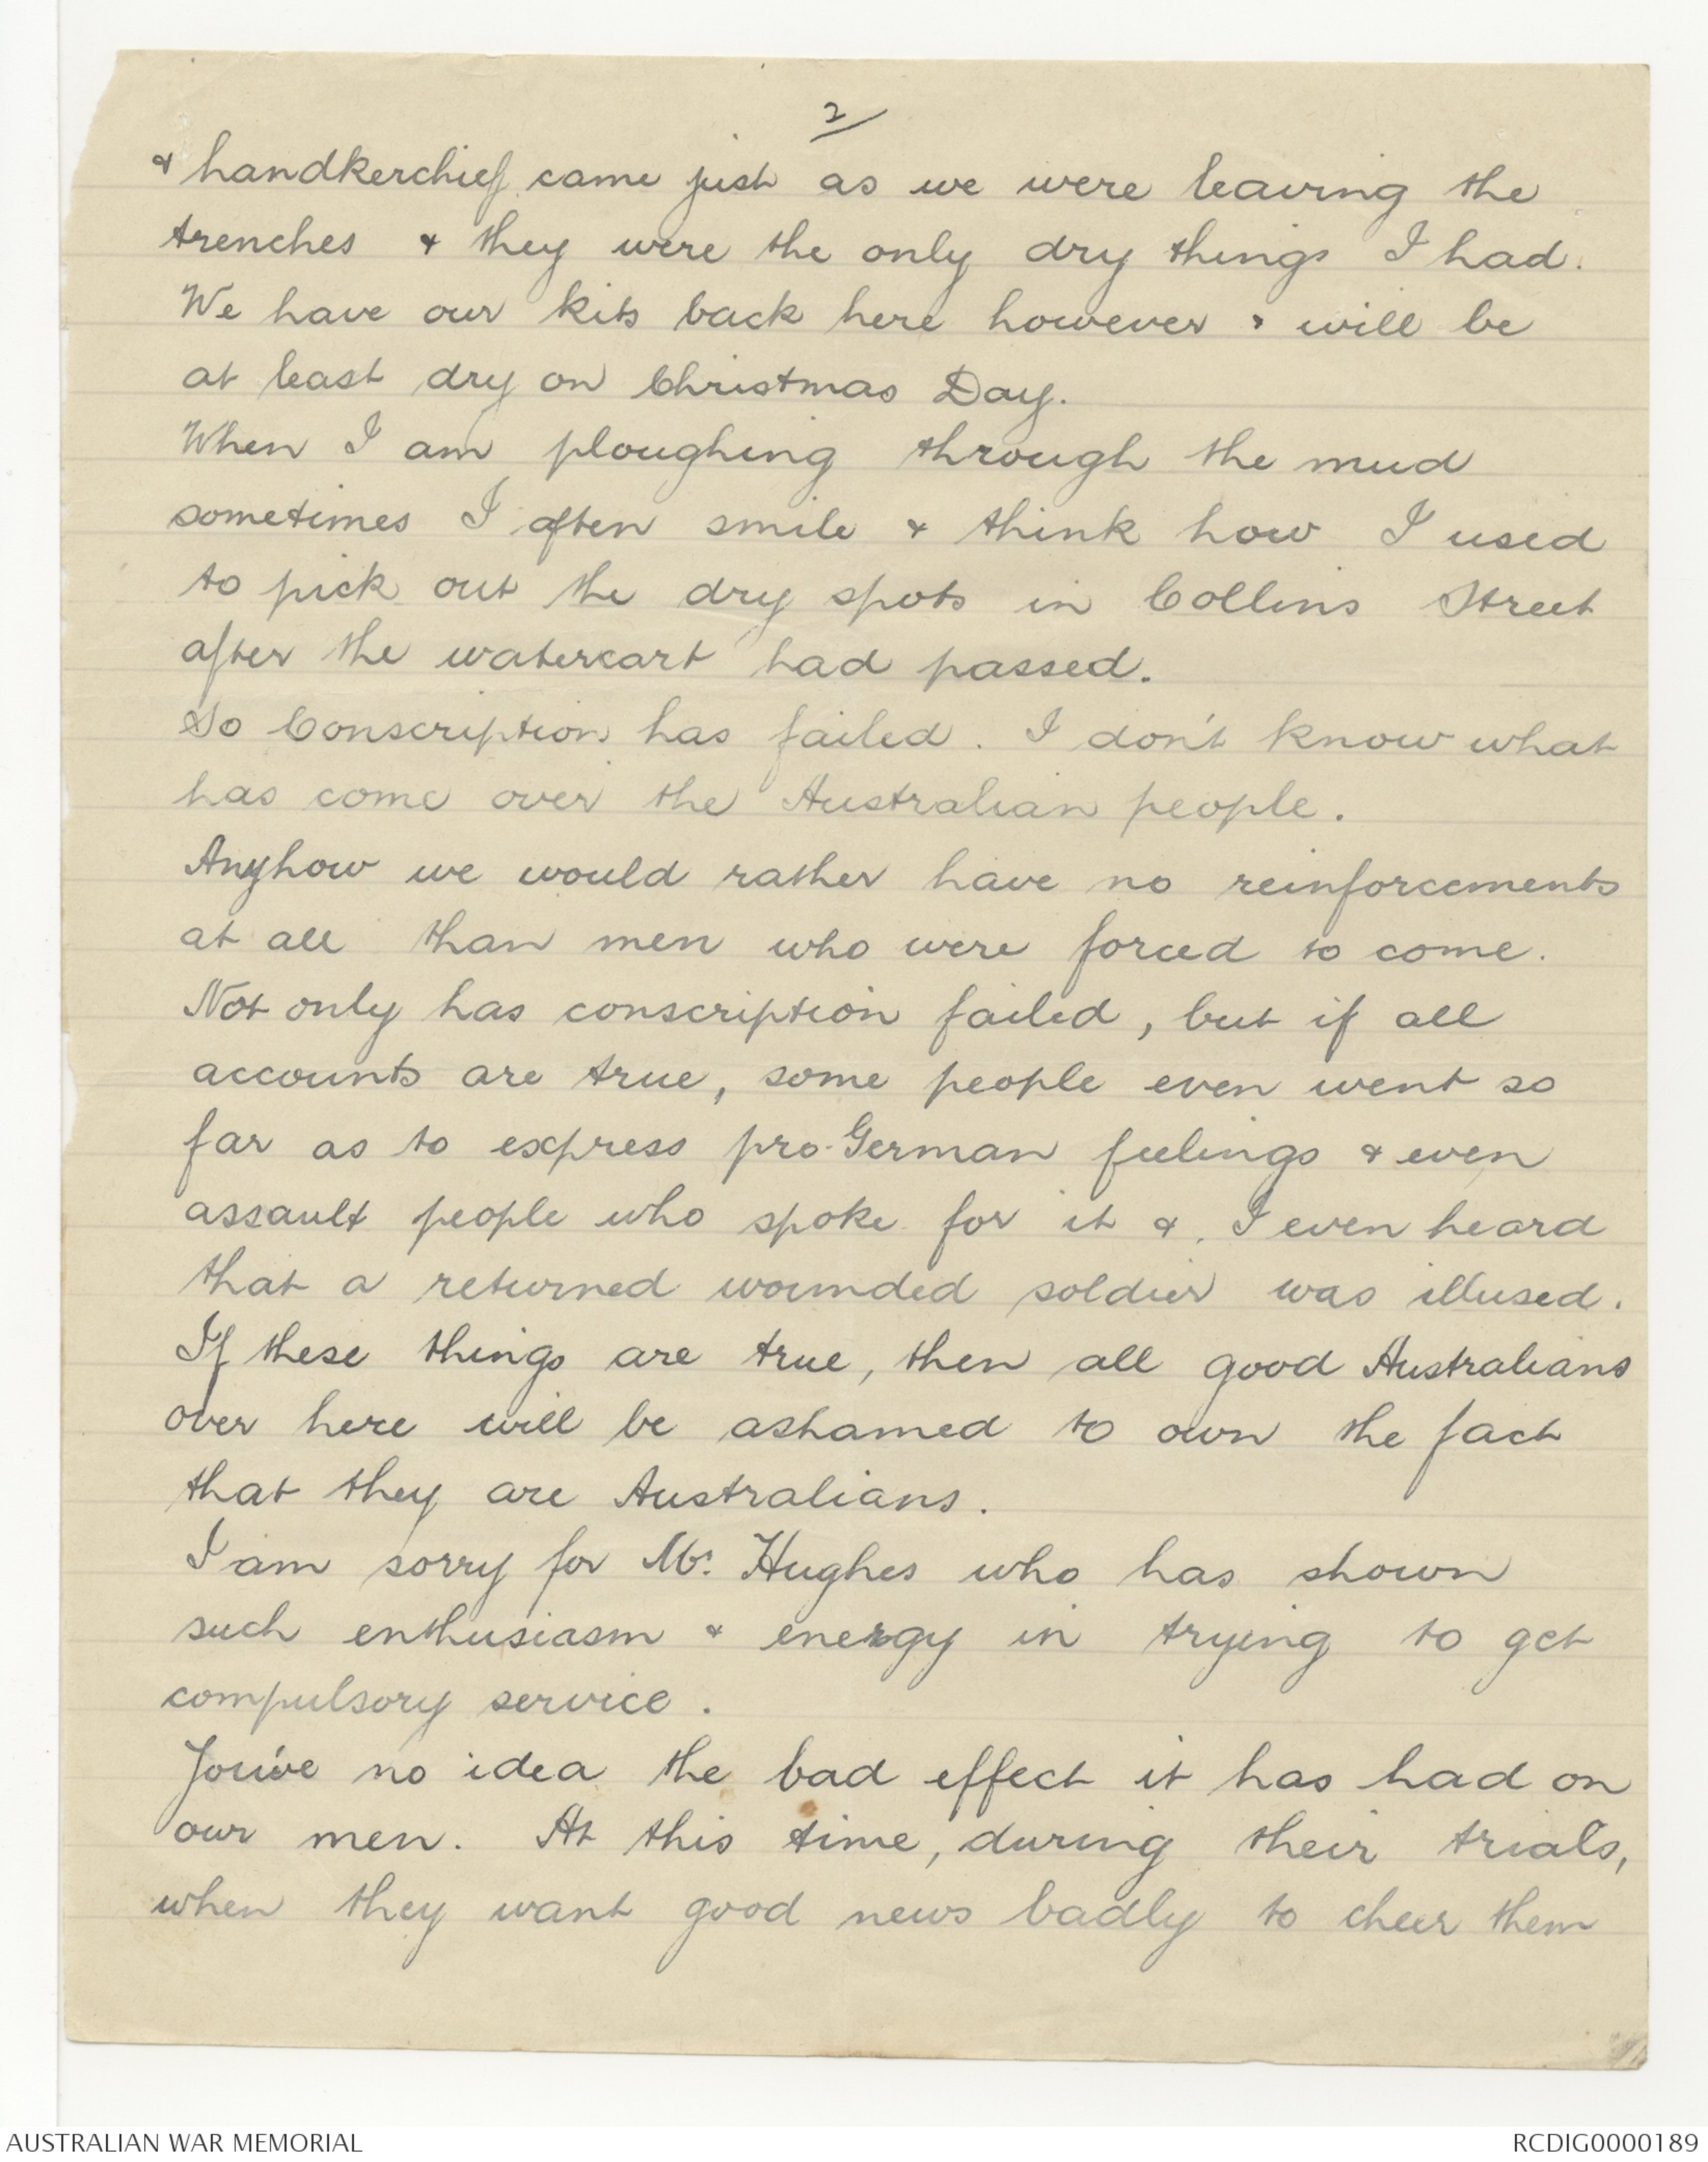 2/
& handkerchief came just as we were leaving the
trenches & they were the only dry things I had.
We have our kits back here however & will be
at least dry on Christmas Day.
When I am ploughing through the mud
sometimes I often smile & think how I used
to pick out the dry spots in Collins Street
after the watercart had passed.
So Conscription has failed. I don't know what
has come over the Australian people.
Anyhow we would rather have no reinforcements
at all than men who were forced to come.
Not only has conscription failed, but if all
accounts are true, some people even went so
far as to express pro-German feelings & even
assault people who spoke for it & I even heard
that a returned wounded soldier was illused.
If these things are true, then all good Australians
over here will be ashamed to own the fact
that they are Australians.
I am sorry for Mr. Hughes who has shown
such enthusiasm & energy in trying to get
compulsory service.
You've no idea the bad effect it has had on
our men. At this time, during their trials,
when they want good news badly to cheer them
AUSTRALIAN WAR MEMORIAL
RCDIG0000189